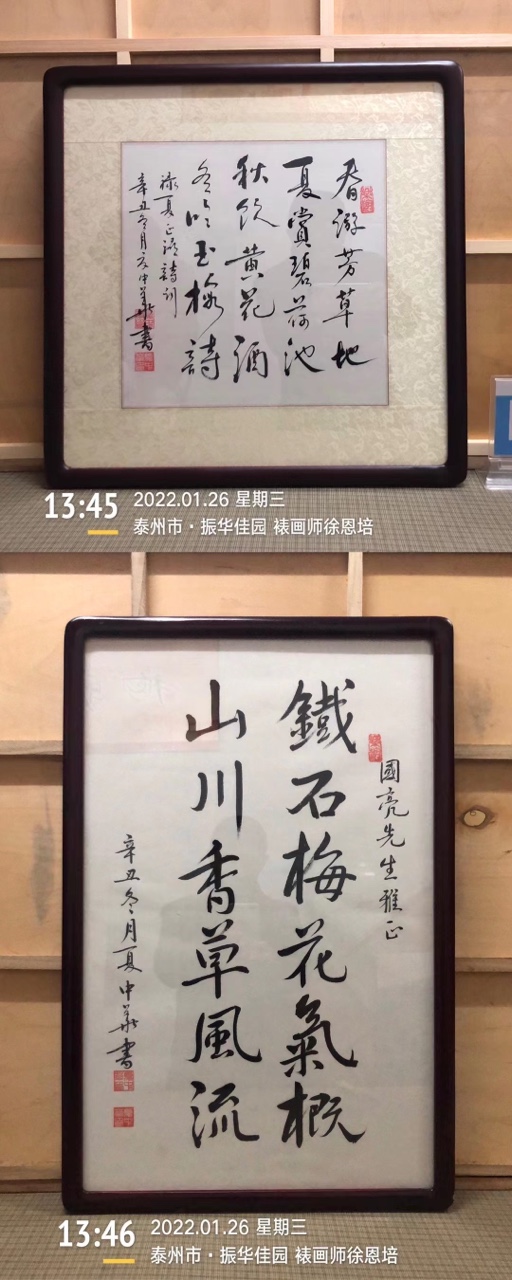 春游芳草地
夏賞碧荷池
秋飲黄花酒
冬吟白雪詩
録夏正清詩詞
辛丑冬月夏中華書
13:45
2022.01.26 星期三
泰州市·振华佳园 裱画师徐恩培
國亮先生雅正
鐵石梅花氣概
山川香草風流
辛丑冬月夏中華書
13:46
2022.01.26 星期三
泰州市·振华佳园 裱画师徐恩培